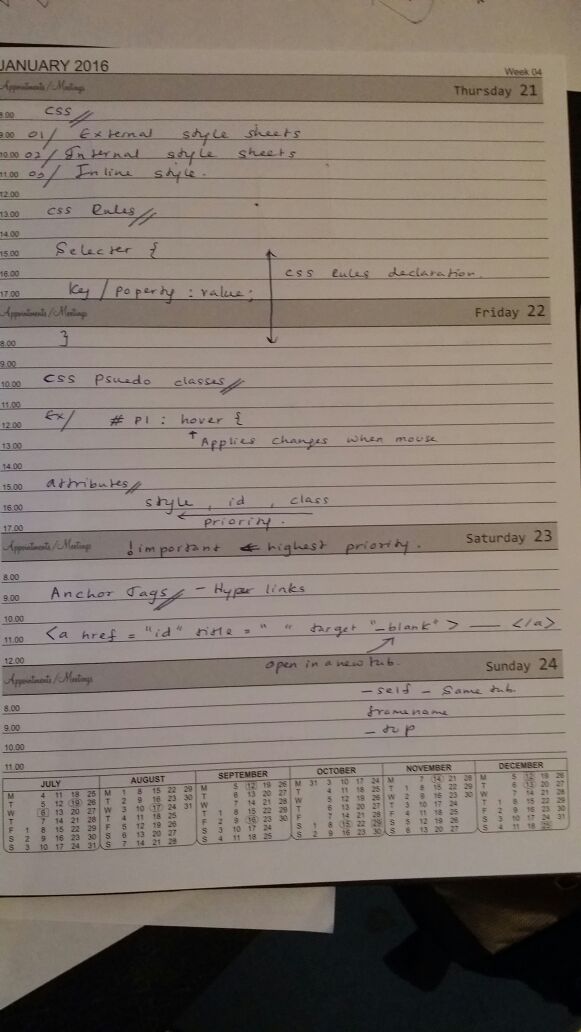 JANUARY 2016
Week 04
Appointments/Meetings
Thursday 21
8.00 CSS
9.00 01/ External style sheets
10.00 02/ Internal style sheets
11.00 03/ Inline style.
12.00
13.00 CSS Rules
14.00
15.00 Selecter {
16.00 CSS Rules declaration.
17.00 Key / poperty : value;
Appointments/Meetings
Friday 22
8.00 }
9.00
10.00 CSS Psuedo classes
11.00
12.00 Ex/ # P1 : hover {
13.00 ↑ Applies changes when mouse
14.00
15.00 attributes
16.00 style , id , class
17.00 priority.
Appointments/Meetings
!important ← highest priority.
Saturday 23
8.00
9.00 Anchor Tags - Hyper links
10.00
11.00 <a href = "id" title = " " target "_blank" > — </a>
12.00 open in a new tab.
Appointments/Meetings
Sunday 24
8.00 _self - Same tab.
9.00 framename
10.00 _top
11.00
JULY
M 4 11 18 25
T 5 12 19 26
W 6 13 20 27
T 7 14 21 28
F 1 8 15 22 29
S 2 9 16 23 30
S 3 10 17 24 31
AUGUST
M 1 8 15 22 29
T 2 9 16 23 30
W 3 10 17 24 31
T 4 11 18 25
F 5 12 19 26
S 6 13 20 27
S 7 14 21 28
SEPTEMBER
M 5 12 19 26
T 6 13 20 27
W 7 14 21 28
T 1 8 15 22 29
F 2 9 16 23 30
S 3 10 17 24
S 4 11 18 25
OCTOBER
M 31 3 10 17 24
T 4 11 18 25
W 5 12 19 26
T 6 13 20 27
F 7 14 21 28
S 1 8 15 22 29
S 2 9 16 23 30
NOVEMBER
M 7 14 21 28
T 1 8 15 22 29
W 2 9 16 23 30
T 3 10 17 24
F 4 11 18 25
S 5 12 19 26
S 6 13 20 27
DECEMBER
M 5 12 19 26
T 6 13 20 27
W 7 14 21 28
T 1 8 15 22 29
F 2 9 16 23 30
S 3 10 17 24 31
S 4 11 18 25